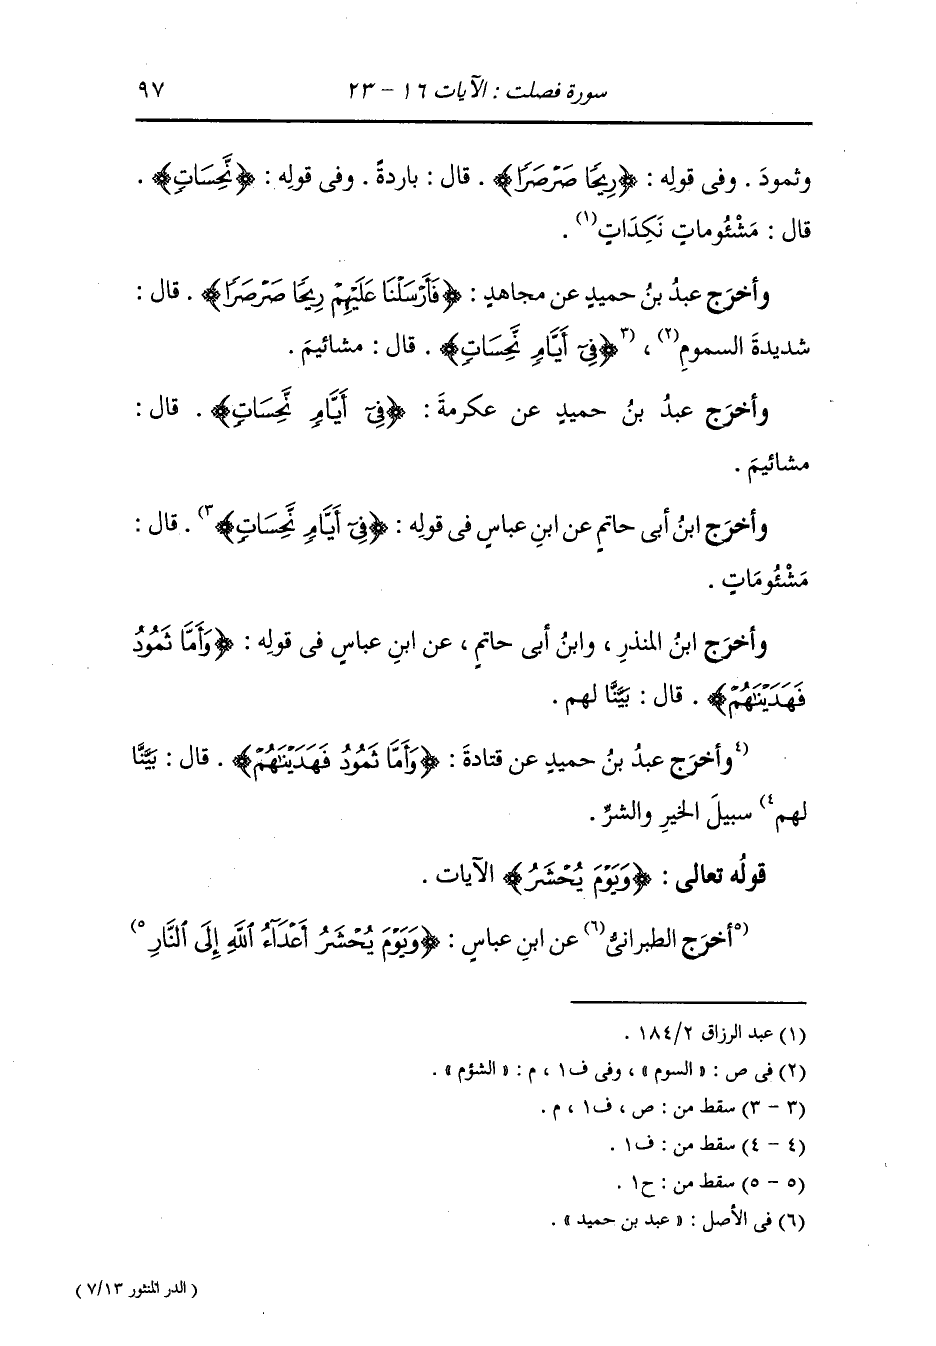 سورة فصلت : الآيات ١٦ - ٢٣
٩٧
وثمودَ . وفى قولِه : ﴿رِيحًا صَرْصَرًا﴾ . قال : باردةً . وفى قولِه : ﴿نَّحِسَاتٍ﴾ .
قال : مَشْئُوماتٍ نَكِدَاتٍ(١) .
وأخرَج عبدُ بنُ حميدٍ عن مجاهدٍ : ﴿فَأَرْسَلْنَا عَلَيْهِمْ رِيحًا صَرْصَرًا﴾ . قال :
شديدةَ السمومِ(٢) ، (٣﴿فِىٓ أَيَّامٍ نَّحِسَاتٍ﴾ . قال : مشائيمَ .
وأخرَج عبدُ بنُ حميدٍ عن عكرمةَ : ﴿فِىٓ أَيَّامٍ نَّحِسَاتٍ﴾ . قال :
مشائيمَ .
وأخرَج ابنُ أبى حاتمٍ عن ابنِ عباسٍ فى قولِه : ﴿فِىٓ أَيَّامٍ نَّحِسَاتٍ﴾٣) . قال :
مَشْئُومَاتٍ .
وأخرَج ابنُ المنذرِ ، وابنُ أبى حاتمٍ ، عن ابنِ عباسٍ فى قولِه : ﴿وَأَمَّا ثَمُودُ
فَهَدَيْنَٰهُمْ﴾ . قال : بَيَّنَّا لهم .
(٤وأخرَج عبدُ بنُ حميدٍ عن قتادةَ : ﴿وَأَمَّا ثَمُودُ فَهَدَيْنَٰهُمْ﴾ . قال : بَيَّنَّا
لهم٤) سبيلَ الخيرِ والشرِّ .
قولُه تعالى : ﴿وَيَوْمَ يُحْشَرُ﴾ الآيات .
(٥أخرَج الطبرانىُّ(٦) عن ابنِ عباسٍ : ﴿وَيَوْمَ يُحْشَرُ أَعْدَآءُ ٱللَّهِ إِلَى ٱلنَّارِ٥)
(١) عبد الرزاق ٢/ ١٨٤ .
(٢) فى ص : « السوم » ، وفى ف١ ، م : « الشؤم » .
(٣ - ٣) سقط من : ص ، ف١ ، م .
(٤ - ٤) سقط من : ف١ .
(٥ - ٥) سقط من : ح١ .
(٦) فى الأصل : « عبد بن حميد » .
( الدر المنثور ٧/١٣ )